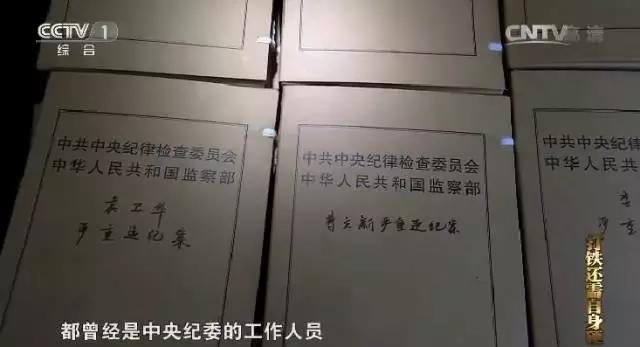 CCTV 1
综合
CNTV 高清
中共中央纪律检查委员会
中华人民共和国监察部
袁卫华
严重违纪案
中共中央纪律检查委员会
中华人民共和国监察部
曹立新严重违纪案
中共中央纪律
中华人民共和
严重
打铁还需自身
都曾经是中央纪委的工作人员